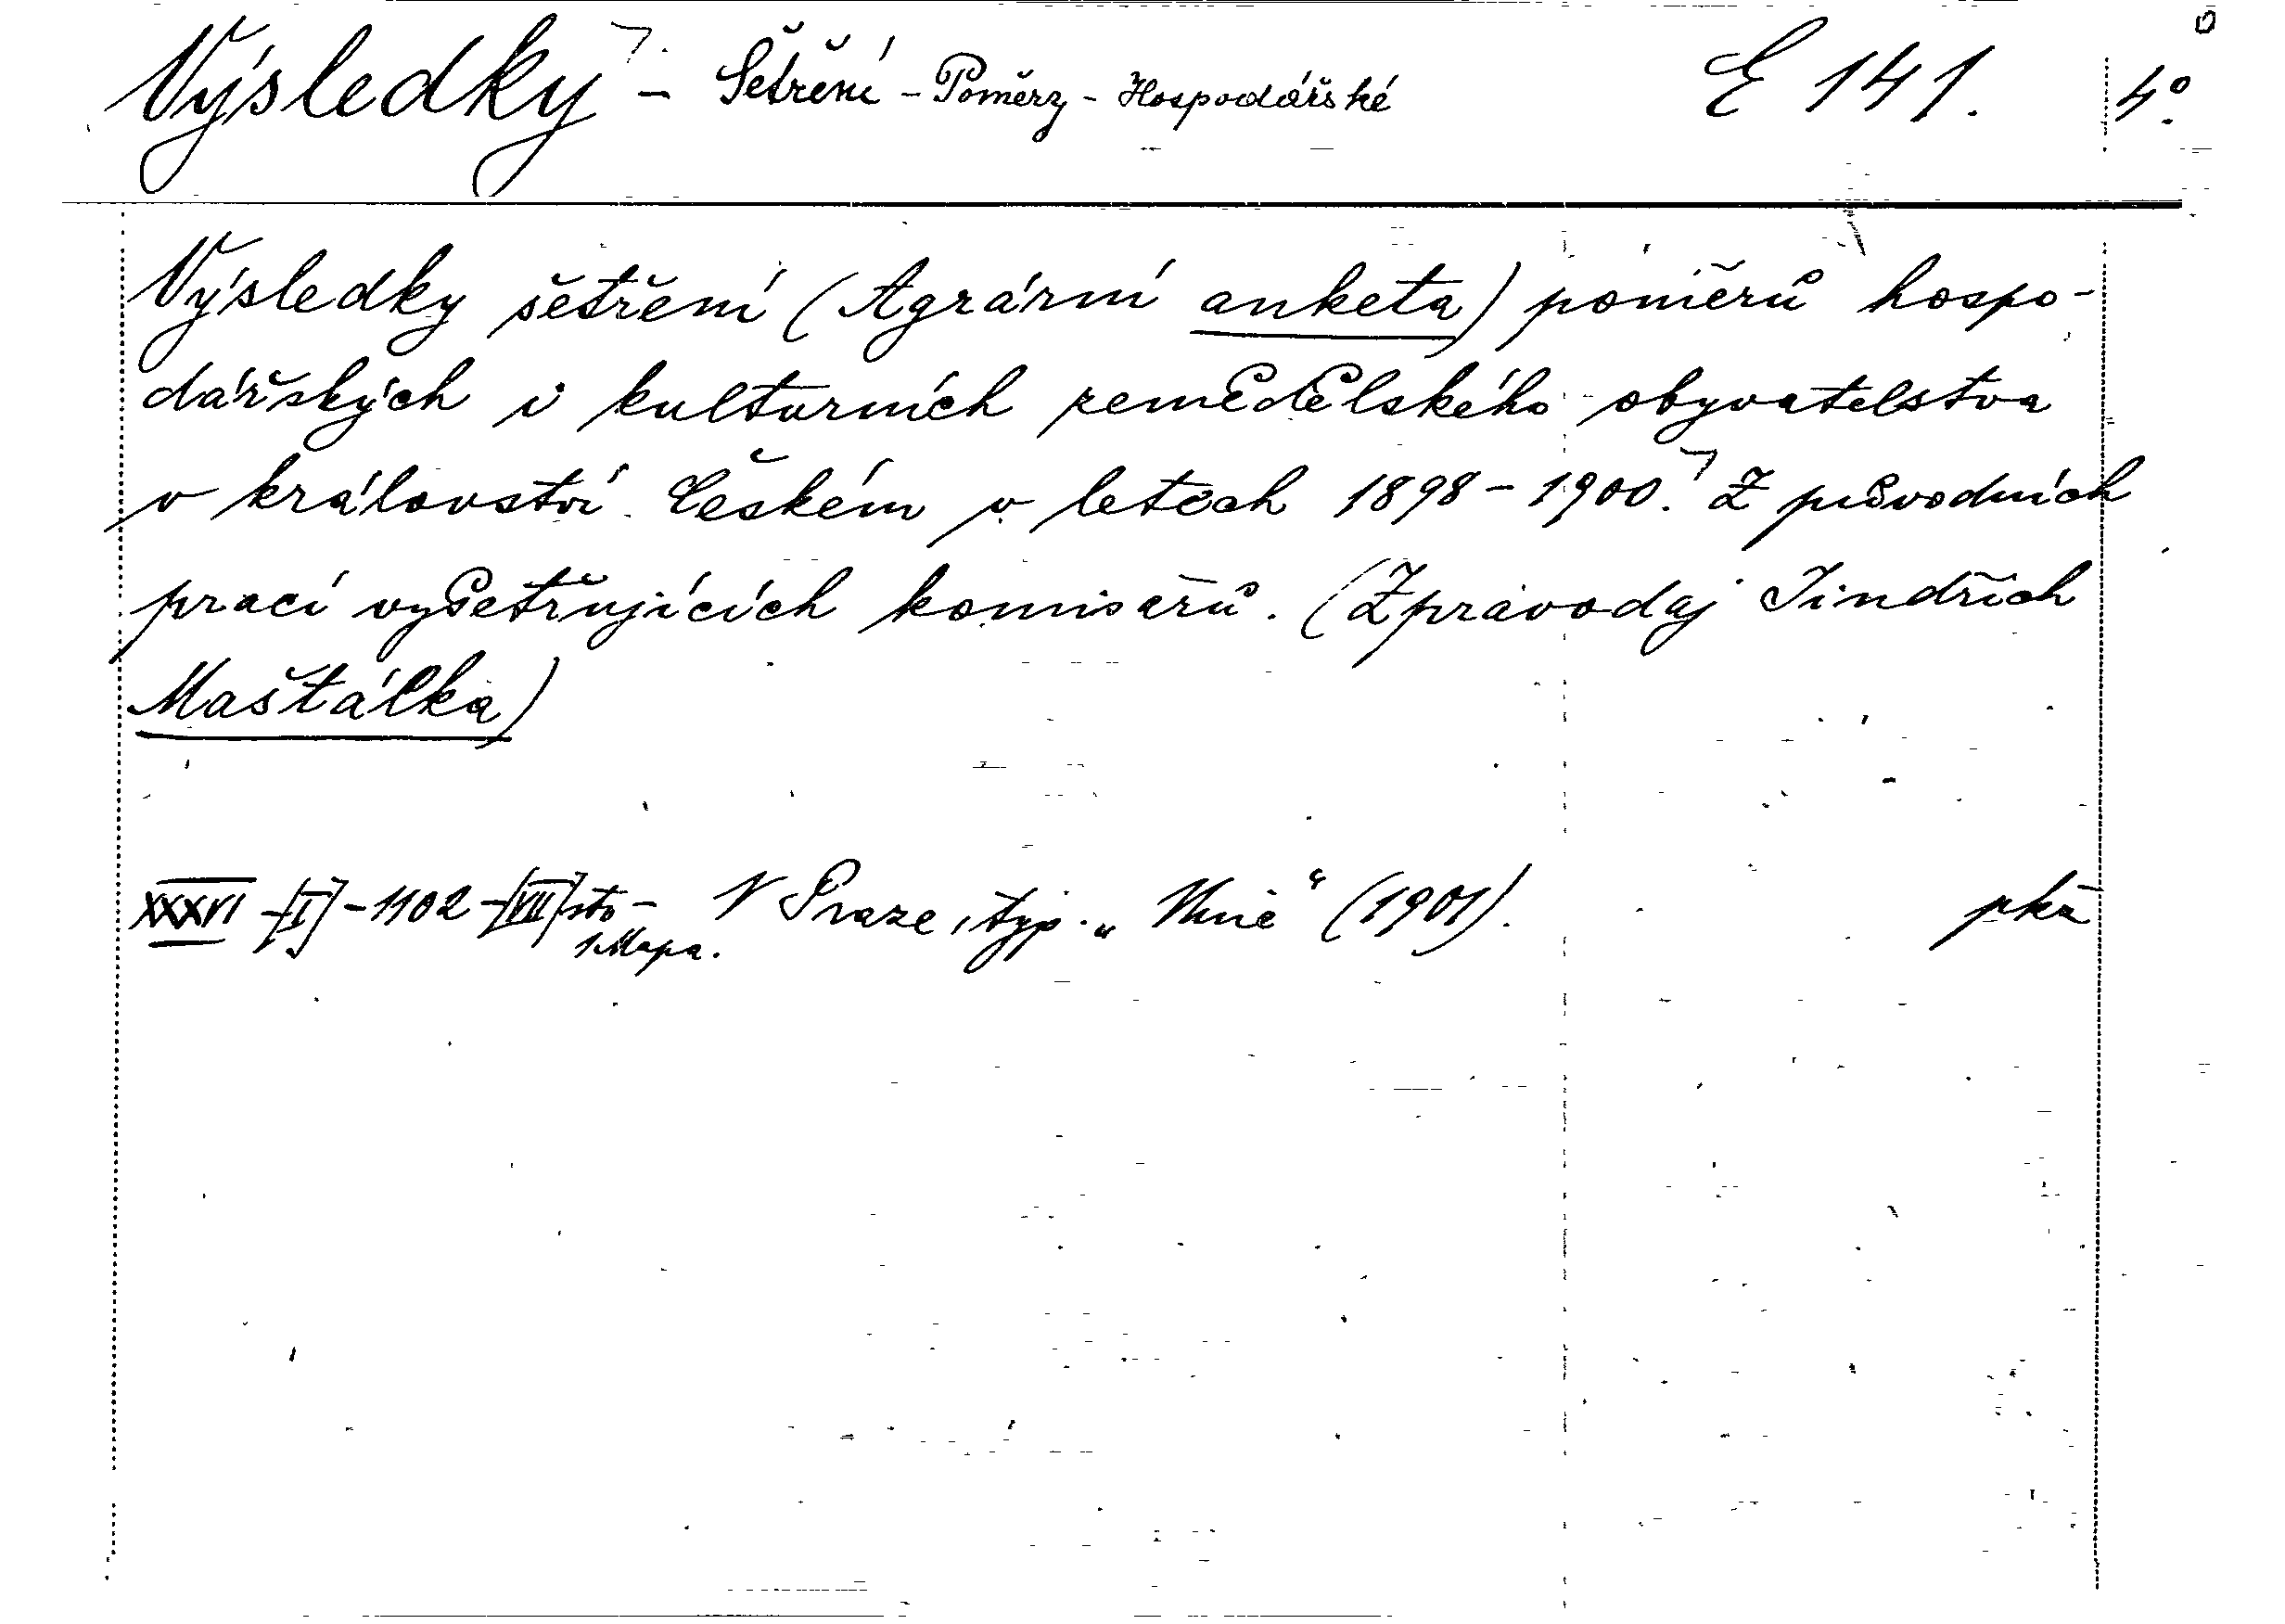 Výsledky - Šetření - Poměry - Hospodářské E 141. 4°.
Výsledky šetření (Agrární anketa) poměrů hospo-
dářských i kulturních zemědělského obyvatelstva
v království Českém v letech 1898-1900. Z původních
prací vyšetřujících komisařů. (Zpravodaj Jindřich
Maštálka)
XXXVI -[I]-1102-[VII] sto- V Praze, typ. „Unie“ (1901). pka
1 Mapa.